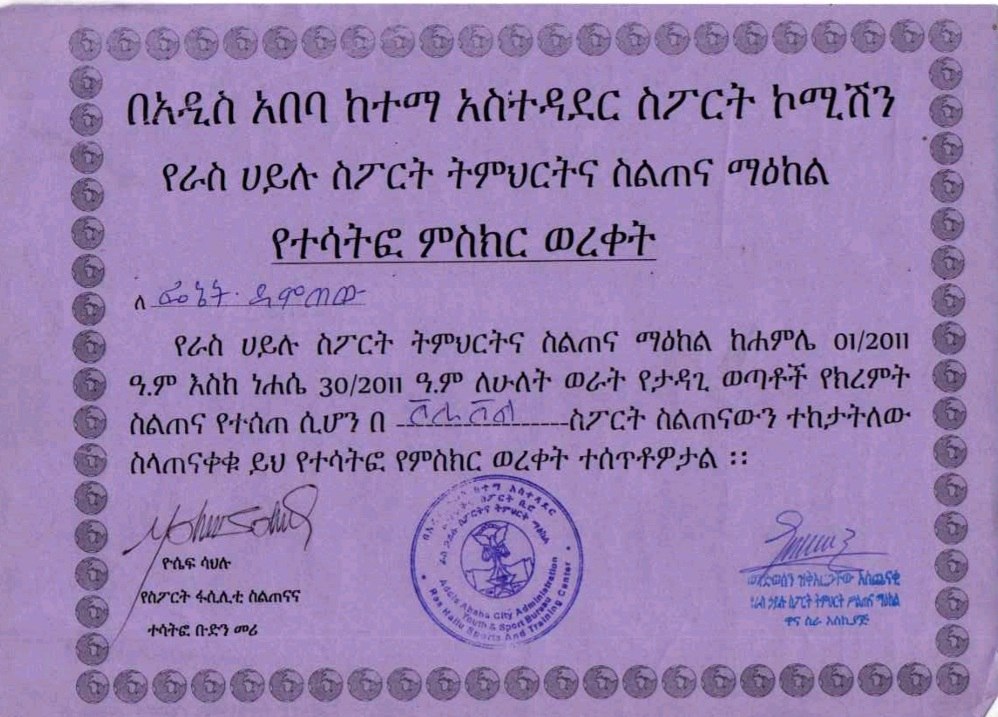 በአዲስ አበባ ከተማ አስተዳደር ስፖርት ኮሚሽን
የራስ ሀይሉ ስፖርት ትምህርትና ስልጠና ማዕከል
የተሳትፎ ምስክር ወረቀት
ለ
የራስ ሀይሉ ስፖርት ትምህርትና ስልጠና ማዕከል ከሐምሌ 01/2011
ዓ.ም እስከ ነሐሴ 30/2011 ዓ.ም ለሁለት ወራት የታዳጊ ወጣቶች የክረምት
ስልጠና የተሰጠ ሲሆን በ ስፖርት ስልጠናውን ተከታትለው
ስላጠናቀቁ ይህ የተሳትፎ የምስክር ወረቀት ተሰጥቶዎታል ፡፡
ዮሴፍ ሳህሉ
የስፖርት ፋሲሊቲ ስልጠናና
ተሳትፎ ቡድን መሪ
Addis Ababa City Administration
Youth & Sport Bureau
Ras Hailu Sports And Training Center
ዋና ስራ አስኪያጅ